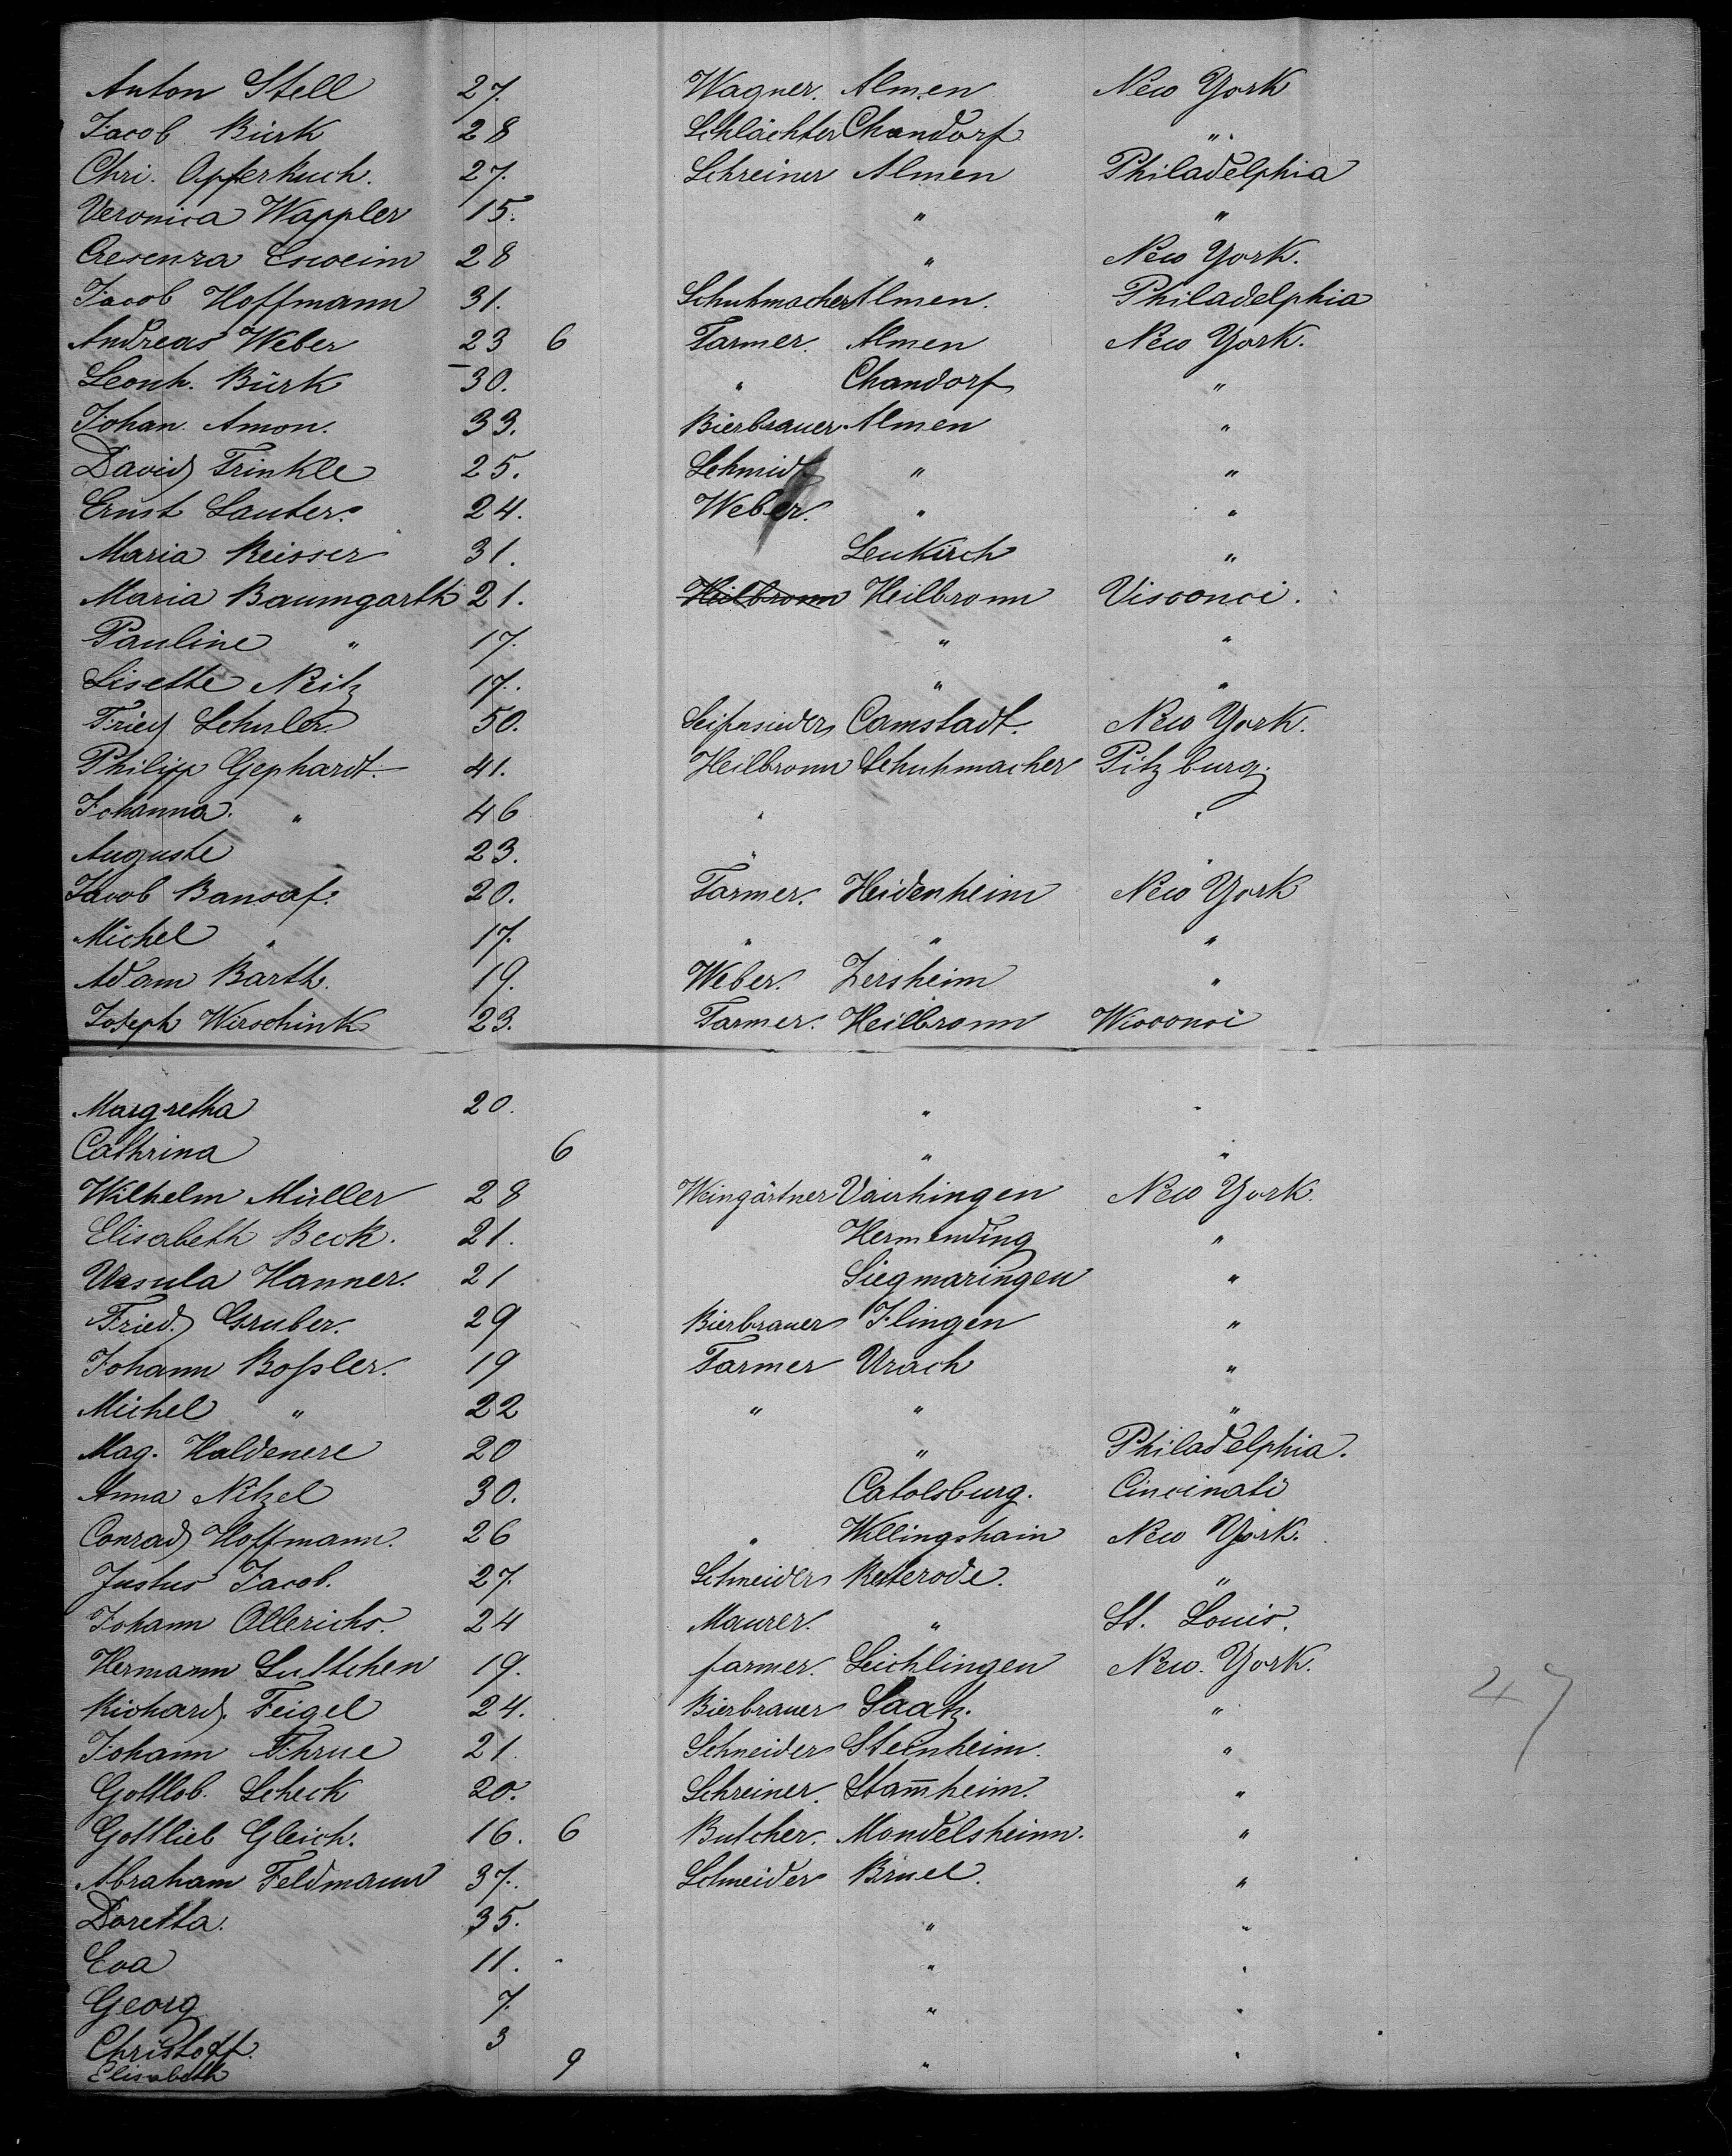 Anton Stell 27. Wagner. Almen New York
Jacob Bürk 28 Schlächter Chandorf "
Chri. Opferkuch. 27. Schreiner Almen Philadelphia
Veronica Wappler 15. " "
Cresenza Esweim 28 " New York.
Jacob Hoffmann 31. Schuhmacher Almen. Philadelphia
Andreas Weber 23 6 Farmer. Almen New York.
Leonh. Bürk 30. " Chandorf "
Johan. Amon. 33. Bierbrauer Almen "
David Trinkle 25. Schmidt " "
Ernst Lauter. 24. Weber. " "
Maria Reisser 31. Leukirch "
Maria Baumgarth 21. Heilbronn Heilbronn Visconci.
Pauline " 17. " "
Lisette Neitz 17. " "
Fried Schuler 50. Seifensieder Camstadt. New York.
Philipp Gephardt. 41. Heilbronn Schuhmacher Pitzburg.
Johanna. " 46 " "
Auguste 23. " "
Jacob Bansaf. 20. Farmer. Heidenheim New York
Michel " 17. " " "
Adam Barth. 19. Weber. Zersheim "
Joseph Wirschink 23. Farmer. Heilbronn Wisconsi
Margretha 20. " "
Cathrina 6 " "
Wilhelm Müller 28 Weingärtner Vaihingen New York.
Elisabeth Beck. 21. Hermending "
Ursula Hanner. 21 Siegmaringen "
Fried. Gruber. 29 Bierbrauer Illingen "
Johann Boßler. 19 Farmer Urach "
Michel " 22 " " "
Mag. Haldenere 20 " Philadelphia.
Anna Nitzel 30. Catolsburg. Cincinati
Conrad Hoffmann. 26 " Willingshain New York.
Justus Jacob. 27. Schneider Reterode. "
Johann Ollerichs. 24 Maurer. " St. Louis.
Hermann Lultchen 19. farmer. Leichlingen New. York.
Richard Feigel 24. Bierbrauer Saatz. "
Johann Thrue 21. Schneider Steinheim. "
Gottlob. Scheck 20. Schreiner. Stam̅heim. "
Gottlieb Gleich. 16. 6 Butcher. Mondelsheim. "
Abraham Feldmann 37. Schneider Bruel. "
Doretta. 35. " "
Eva 11. " "
Georg 7. " "
Christoff. 3
Elisabeth 9 " "
47